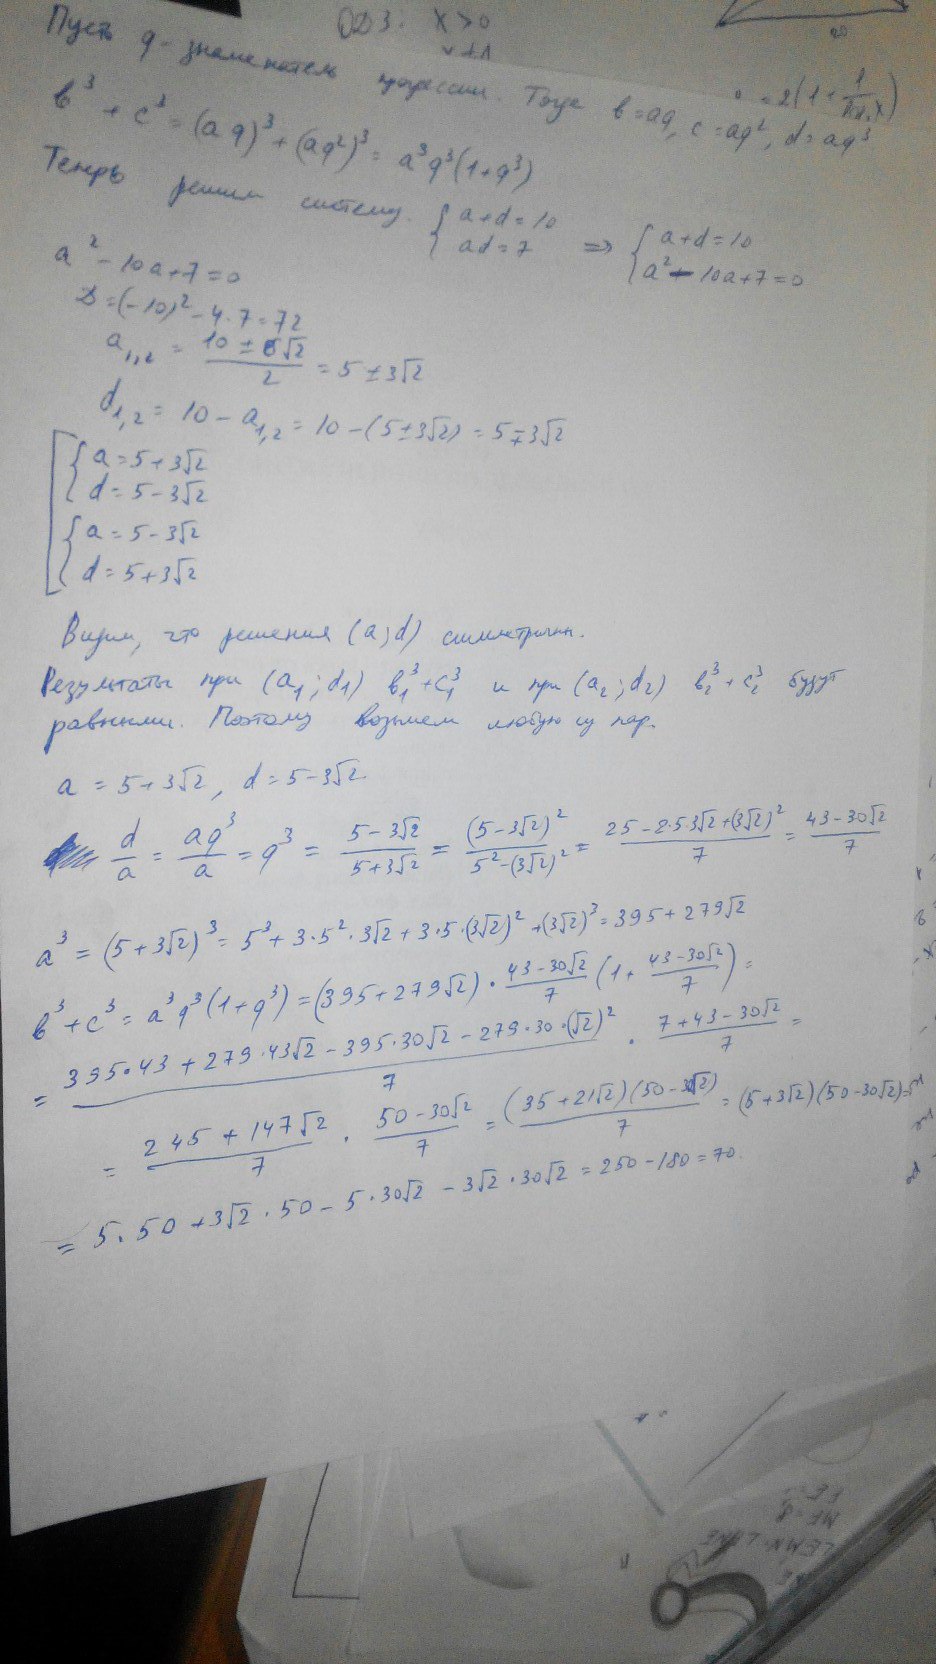 ОДЗ. x>0
Пусть q - знаменатель прогрессии. Тогда b=aq, c=aq², d=aq³
b³+c³=(aq)³+(aq²)³=a³q³(1+q³)
Теперь решим систему. {a+d=10 ad=7 => {a+d=10 a²-10a+7=0
a²-10a+7=0
D=(-10)²-4·7=72
a₁,₂ = (10±6√2)/2 = 5±3√2
d₁,₂ = 10-a₁,₂ = 10-(5±3√2) = 5∓3√2
[{a=5+3√2
d=5-3√2
{a=5-3√2
d=5+3√2
Видим, что решения (a;d) симметричны.
Результаты при (a₁;d₁) b₁³+c₁³ и при (a₂;d₂) b₂³+c₂³ будут
равными. Поэтому возьмем любую из пар.
a=5+3√2, d=5-3√2
d/a = aq³/a = q³ = (5-3√2)/(5+3√2) = (5-3√2)²/(5²-(3√2)²) = (25-2·5·3√2+(3√2)²)/7 = (43-30√2)/7
a³=(5+3√2)³=5³+3·5²·3√2+3·5·(3√2)²+(3√2)³=395+279√2
b³+c³=a³q³(1+q³)=(395+279√2)·(43-30√2)/7(1+(43-30√2)/7)=
= (395·43+279·43√2-395·30√2-279·30·(√2)²)/7 · (7+43-30√2)/7 =
= (245+147√2)/7 · (50-30√2)/7 = (35+21√2)(50-30√2)/7 = (5+3√2)(50-30√2)=
= 5·50+3√2·50-5·30√2-3√2·30√2=250-180=70.